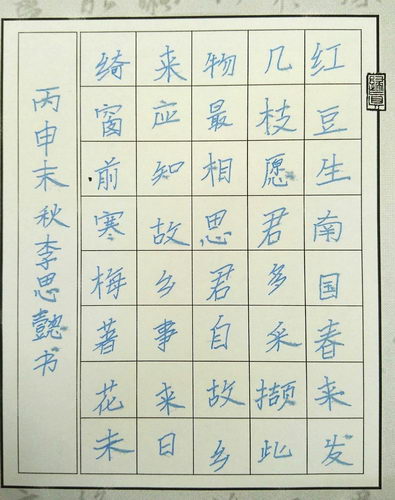 红豆生南国春来发
几枝愿君多采撷此
物最相思君自故乡
来应知故乡事来日
绮窗前寒梅著花未
丙申末秋李思懿书